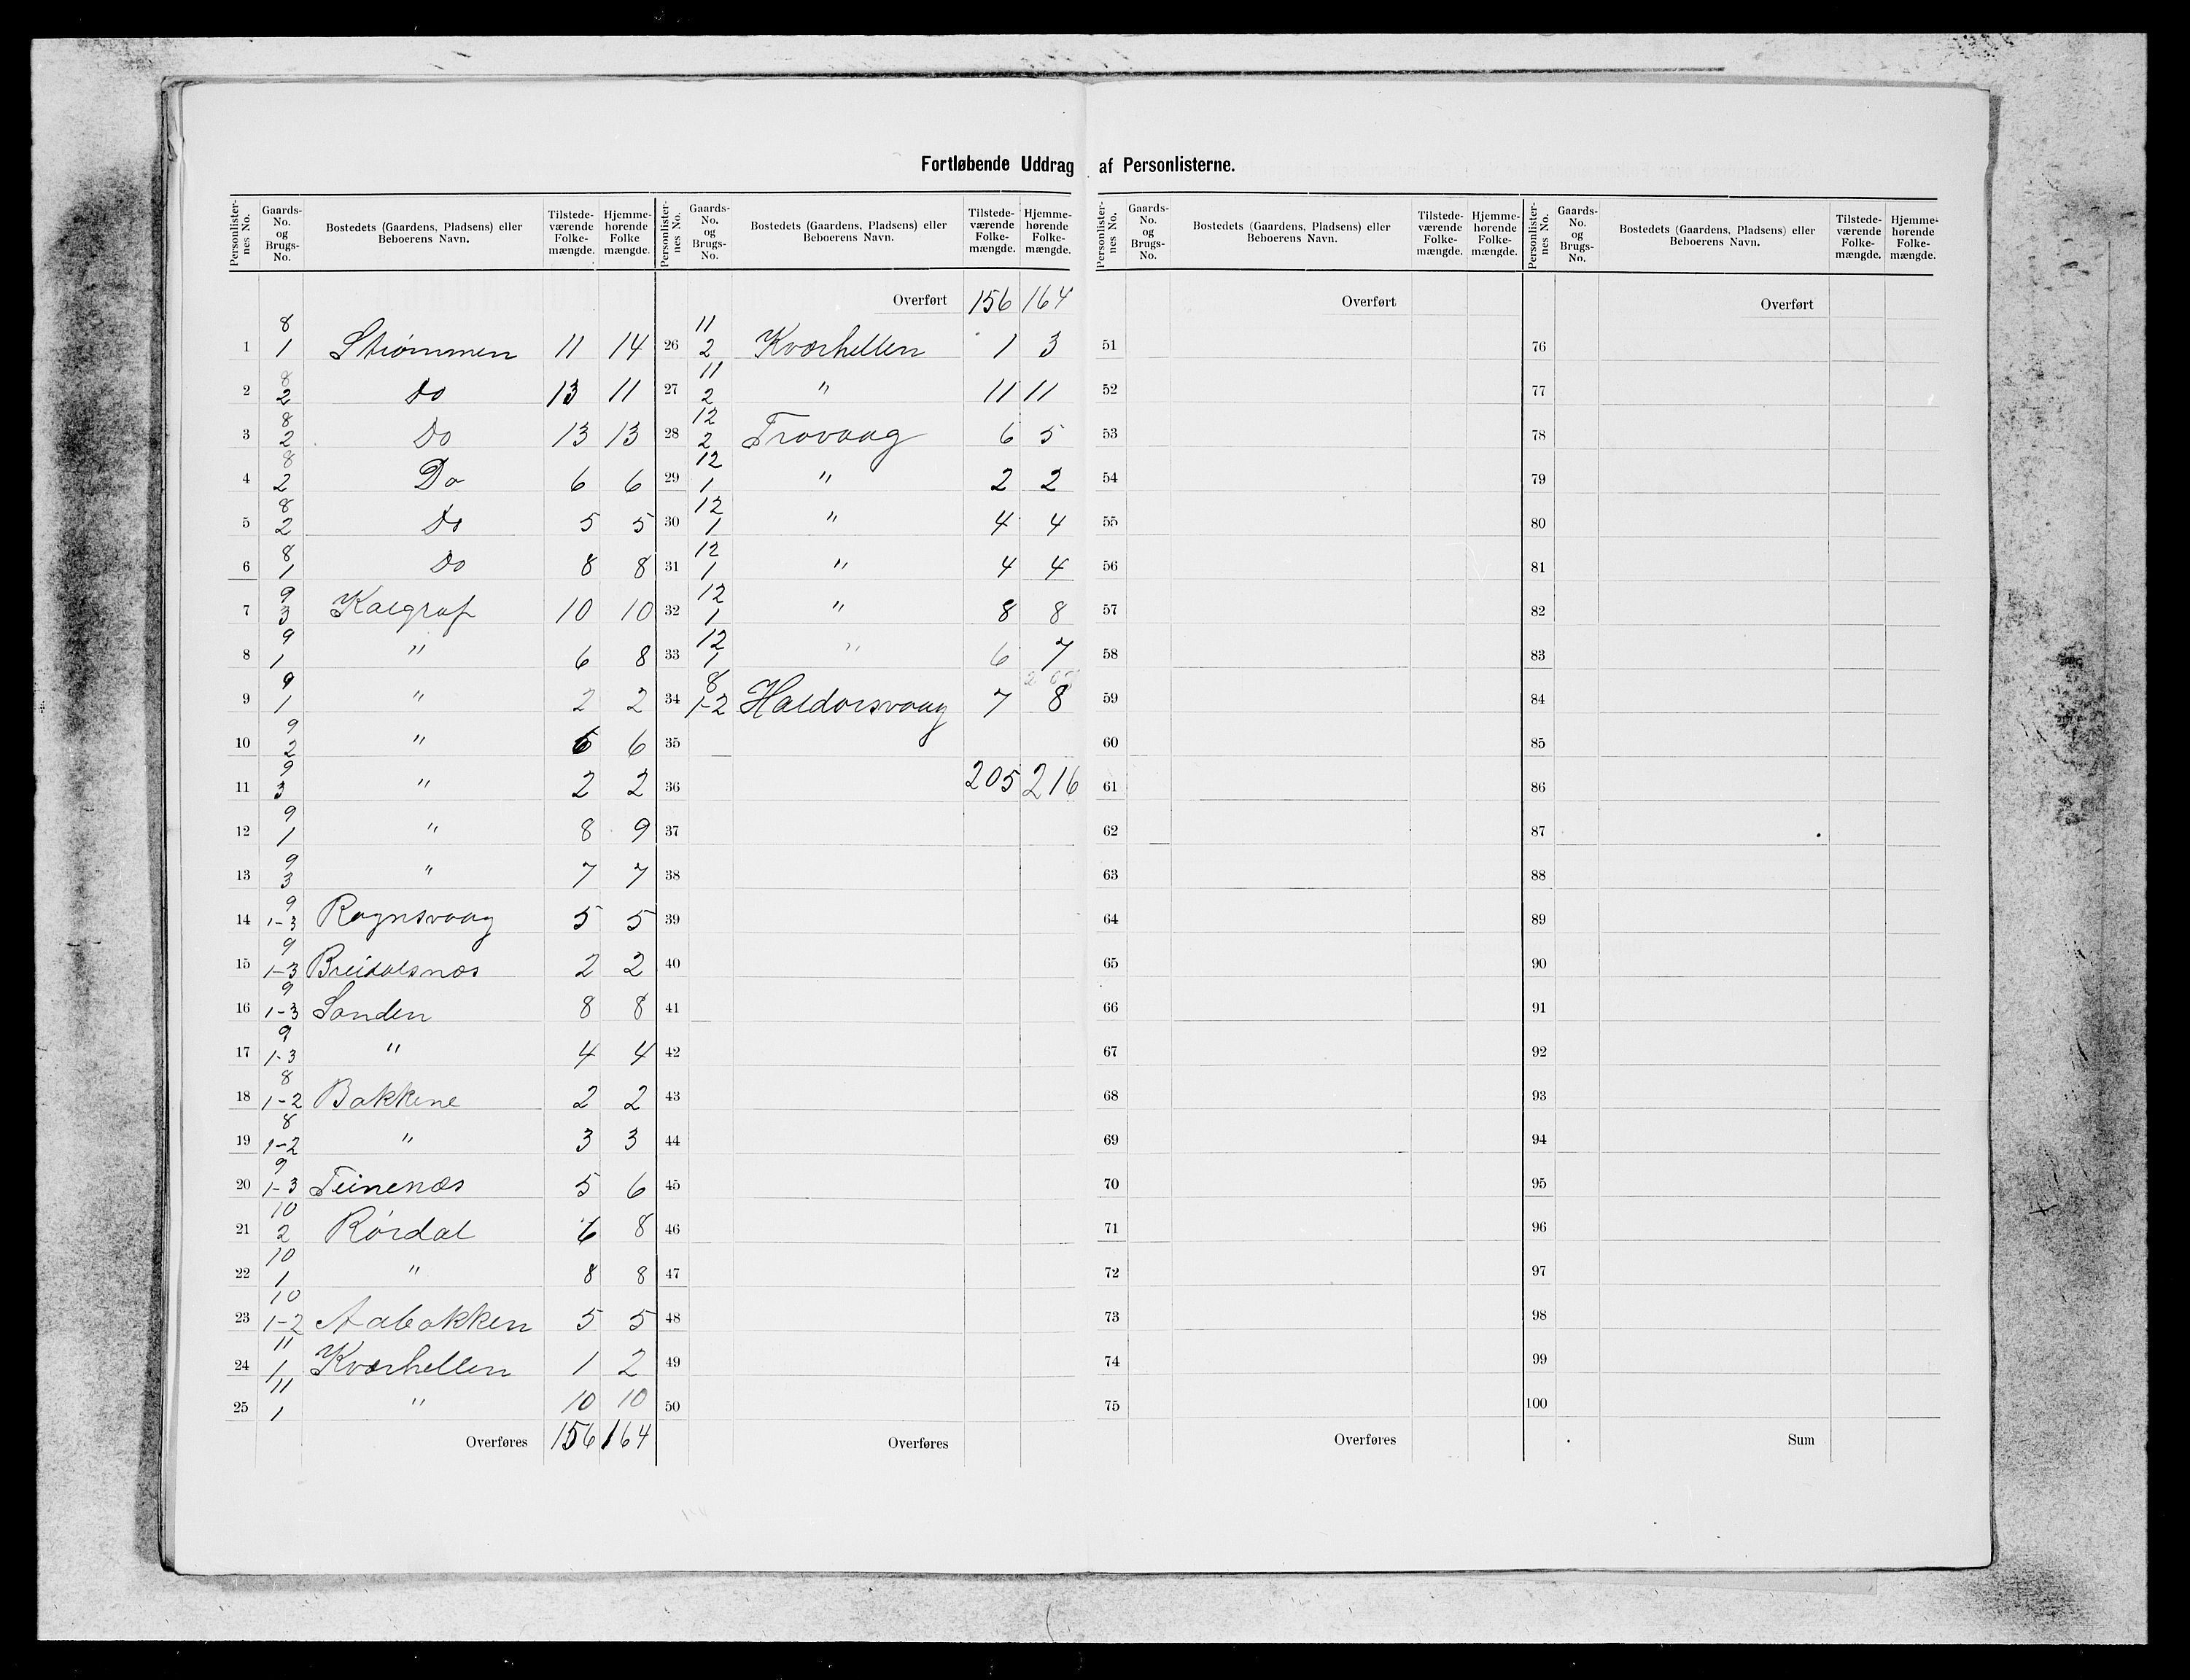 Fortløbende Uddrag af Personlisterne.
Personlister-nes No. | Gaards-No. og Brugs-No. | Bostedets (Gaardens, Pladsens) eller Beboerens Navn. | Tilstede-værende Folke-mængde. | Hjemme-hørende Folke mængde.
1 | 8 1 | Strømmen | 11 | 14
2 | 8 2 | Do | 13 | 11
3 | 8 2 | Do | 13 | 13
4 | 8 2 | Do | 6 | 6
5 | 8 2 | Do | 5 | 5
6 | 8 1 | Do | 8 | 8
7 | 9 3 | Kalgraf | 10 | 10
8 | 9 1 | " | 6 | 8
9 | 9 1 | " | 2 | 2
10 | 9 2 | " | 6 | 6
11 | 9 3 | " | 2 | 2
12 | 9 1 | " | 8 | 9
13 | 9 3 | " | 7 | 7
14 | 9 1-3 | Ragnsvaag | 5 | 5
15 | 9 1-3 | Breidalsnæs | 2 | 2
16 | 9 1-3 | Sanden | 8 | 8
17 | 9 1-3 | " | 4 | 4
18 | 8 1-2 | Bakkene | 2 | 2
19 | 8 1-2 | " | 3 | 3
20 | 9 1-3 | Teinenæs | 5 | 6
21 | 10 2 | Rørdal | 6 | 8
22 | 10 1 | " | 8 | 8
23 | 10 1-2 | Aabakken | 5 | 5
24 | 11 1 | Kværhellen | 1 | 2
25 | 11 1 | " | 10 | 10
Overføres | 156 | 164
Personlister-nes No. | Gaards-No. og Brugs-No. | Bostedets (Gaardens, Pladsens) eller Beboerens Navn. | Tilstede-værende Folke-mængde. | Hjemme-hørende Folke-mængde.
Overført | 156 | 164
26 | 11 2 | Kværhellen | 1 | 3
27 | 11 2 | " | 11 | 11
28 | 12 2 | Trovaag | 6 | 5
29 | 12 1 | " | 2 | 2
30 | 12 1 | " | 4 | 4
31 | 12 1 | " | 4 | 4
32 | 12 1 | " | 8 | 8
33 | 12 1 | " | 6 | 7
34 | 8 1-2 | Haldorsvaag | 7 | 8
35
36 | 205 | 216
37
38
39
40
41
42
43
44
45
46
47
48
49
50
Overføres
Personlister-nes No. | Gaards-No. og Brugs-No. | Bostedets (Gaardens, Pladsens) eller Beboerens Navn. | Tilstede-værende Folke-mængde. | Hjemme-hørende Folke-mængde.
Overført
51
52
53
54
55
56
57
58
59
60
61
62
63
64
65
66
67
68
69
70
71
72
73
74
75
Overføres
Personlister-nes No. | Gaards-No. og Brugs-No. | Bostedets (Gaardens, Pladsens) eller Beboerens Navn. | Tilstede-værende Folke-mængde. | Hjemme-hørende Folke-mængde.
Overført
76
77
78
79
80
81
82
83
84
85
86
87
88
89
90
91
92
93
94
95
96
97
98
99
100
Sum